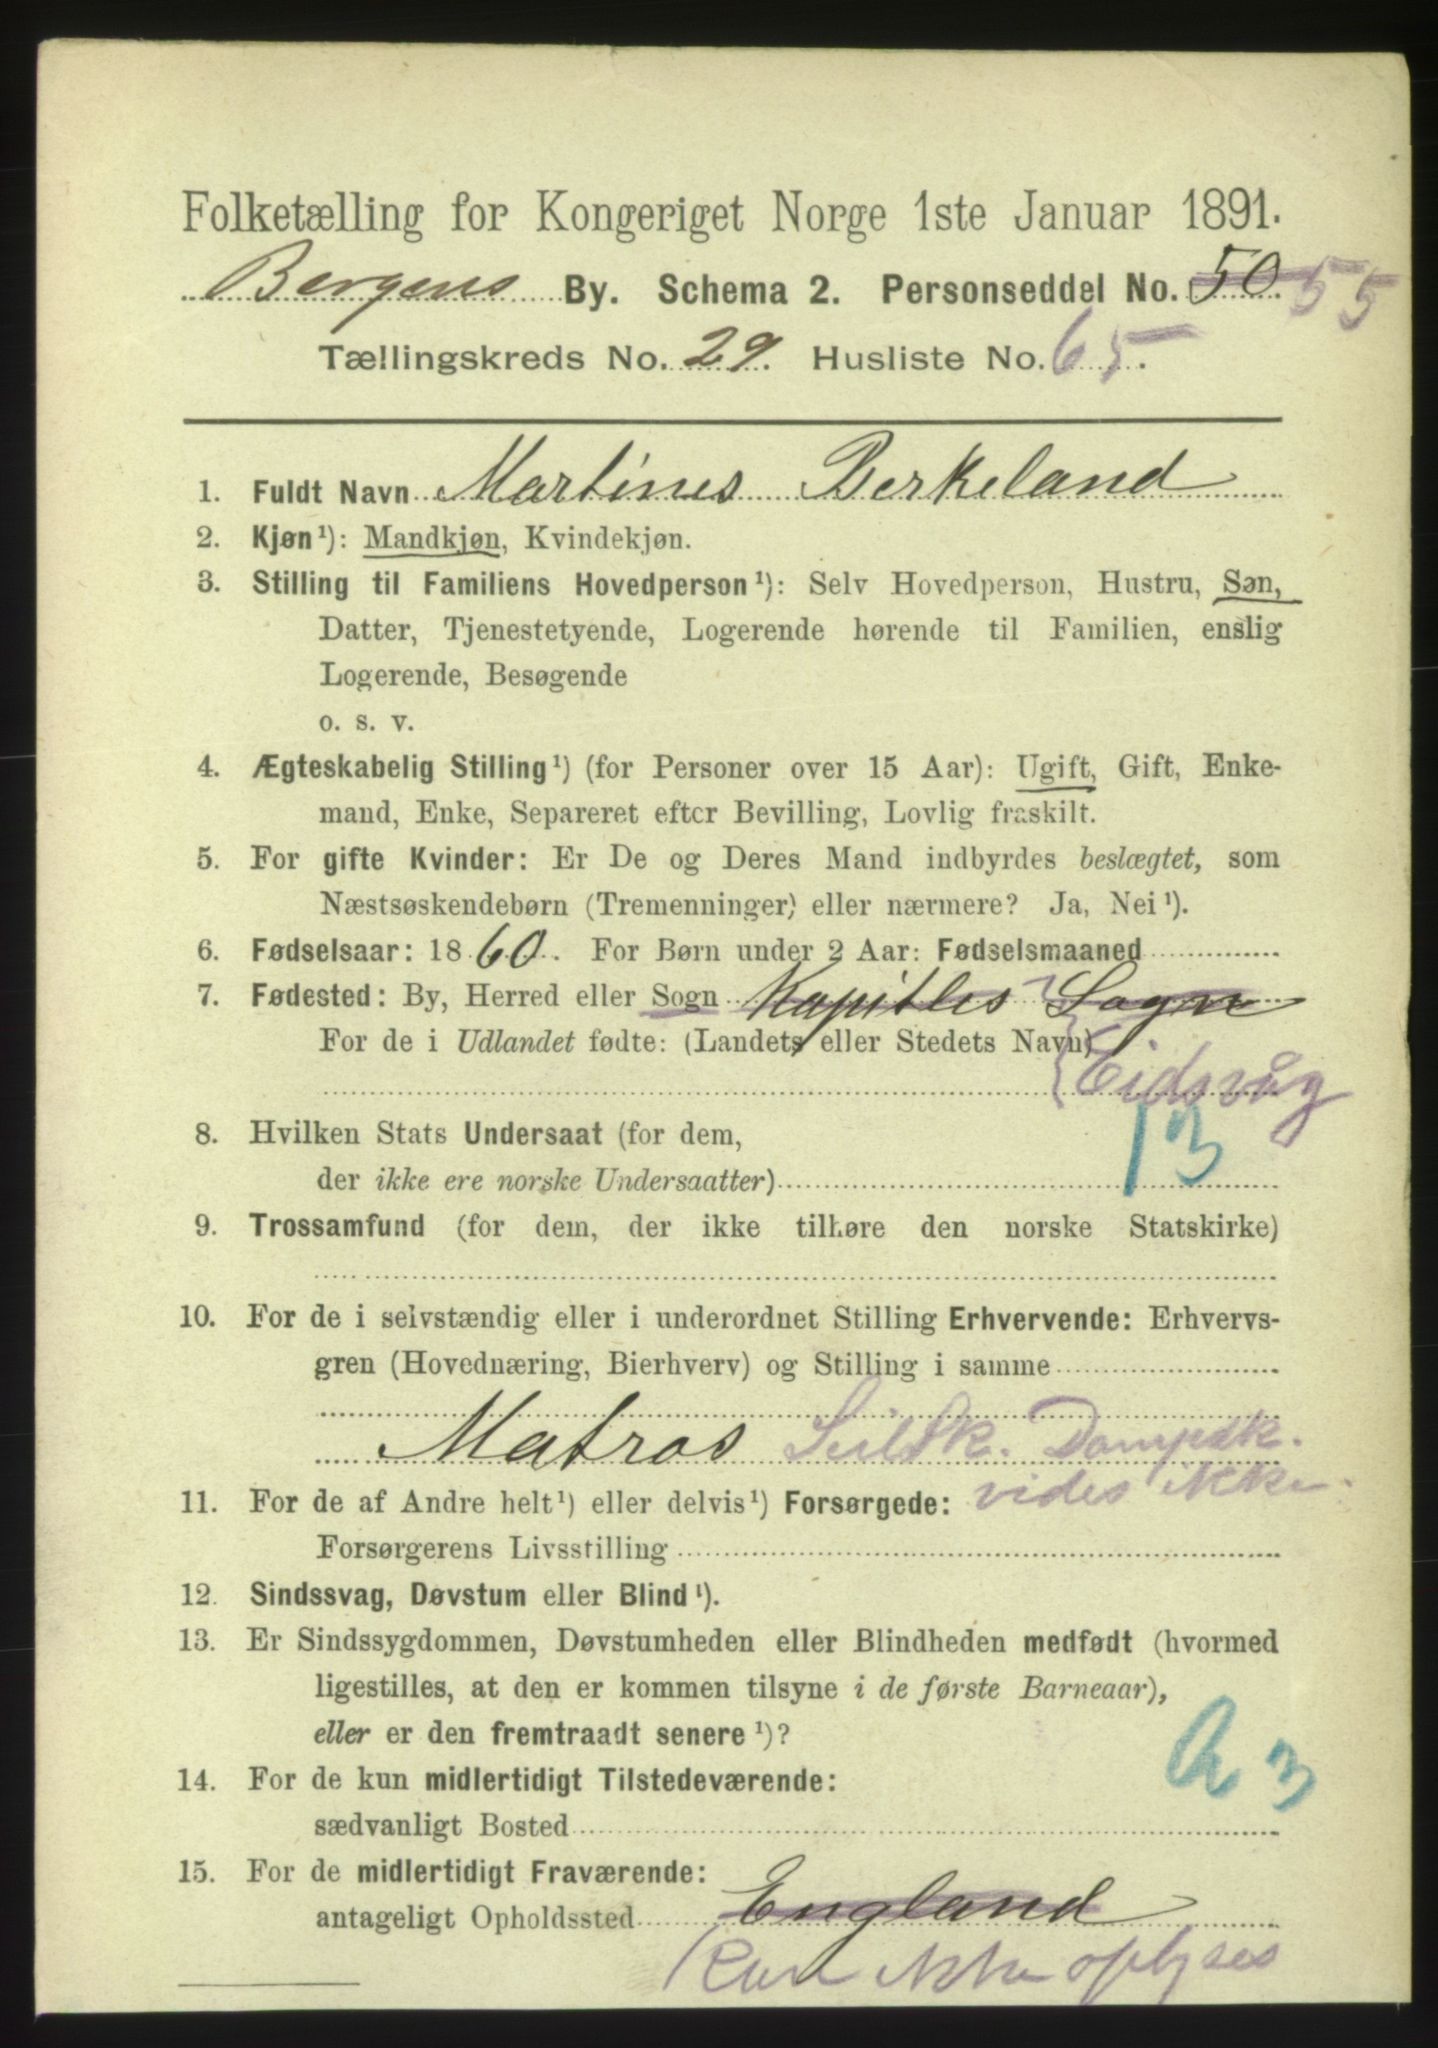 Folketælling for Kongeriget Norge 1ste Januar 1891.
Bergens By. Schema 2. Personseddel No. 50 55
Tællingskreds No. 29. Husliste No. 65.
1. Fuldt Navn Martines Berkeland
2. Kjøn¹): Mandkjøn, Kvindekjøn.
3. Stilling til Familiens Hovedperson¹): Selv Hovedperson, Hustru, Søn,
Datter, Tjenestetyende, Logerende hørende til Familien, enslig
Logerende, Besøgende
o. s. v.
4. Ægteskabelig Stilling¹) (for Personer over 15 Aar): Ugift, Gift, Enke-
mand, Enke, Separeret efter Bevilling, Lovlig fraskilt.
5. For gifte Kvinder: Er De og Deres Mand indbyrdes beslægtet, som
Næstsøskendebørn (Tremenninger) eller nærmere? Ja, Nei¹).
6. Fødselsaar: 1860. For Børn under 2 Aar: Fødselsmaaned
7. Fødested: By, Herred eller Sogn Kapitles Sogn
For de i Udlandet fødte: (Landets eller Stedets Navn)
Eidsvåg
13
8. Hvilken Stats Undersaat (for dem,
der ikke ere norske Undersaatter)
9. Trossamfund (for dem, der ikke tilhøre den norske Statskirke)
10. For de i selvstændig eller i underordnet Stilling Erhvervende: Erhvervs-
gren (Hovednæring, Bierhverv) og Stilling i samme
Matros Seilsk. Dampsk.
vides ikke.
11. For de af Andre helt¹) eller delvis¹) Forsørgede:
Forsørgerens Livsstilling
12. Sindssvag, Døvstum eller Blind¹).
13. Er Sindssygdommen, Døvstumheden eller Blindheden medfødt (hvormed
ligestilles, at den er kommen tilsyne i de første Barneaar),
eller er den fremtraadt senere¹)?
14. For de kun midlertidigt Tilstedeværende:
sædvanligt Bosted
15. For de midlertidigt Fraværende:
antageligt Opholdssted England
Kan ikke oplyses